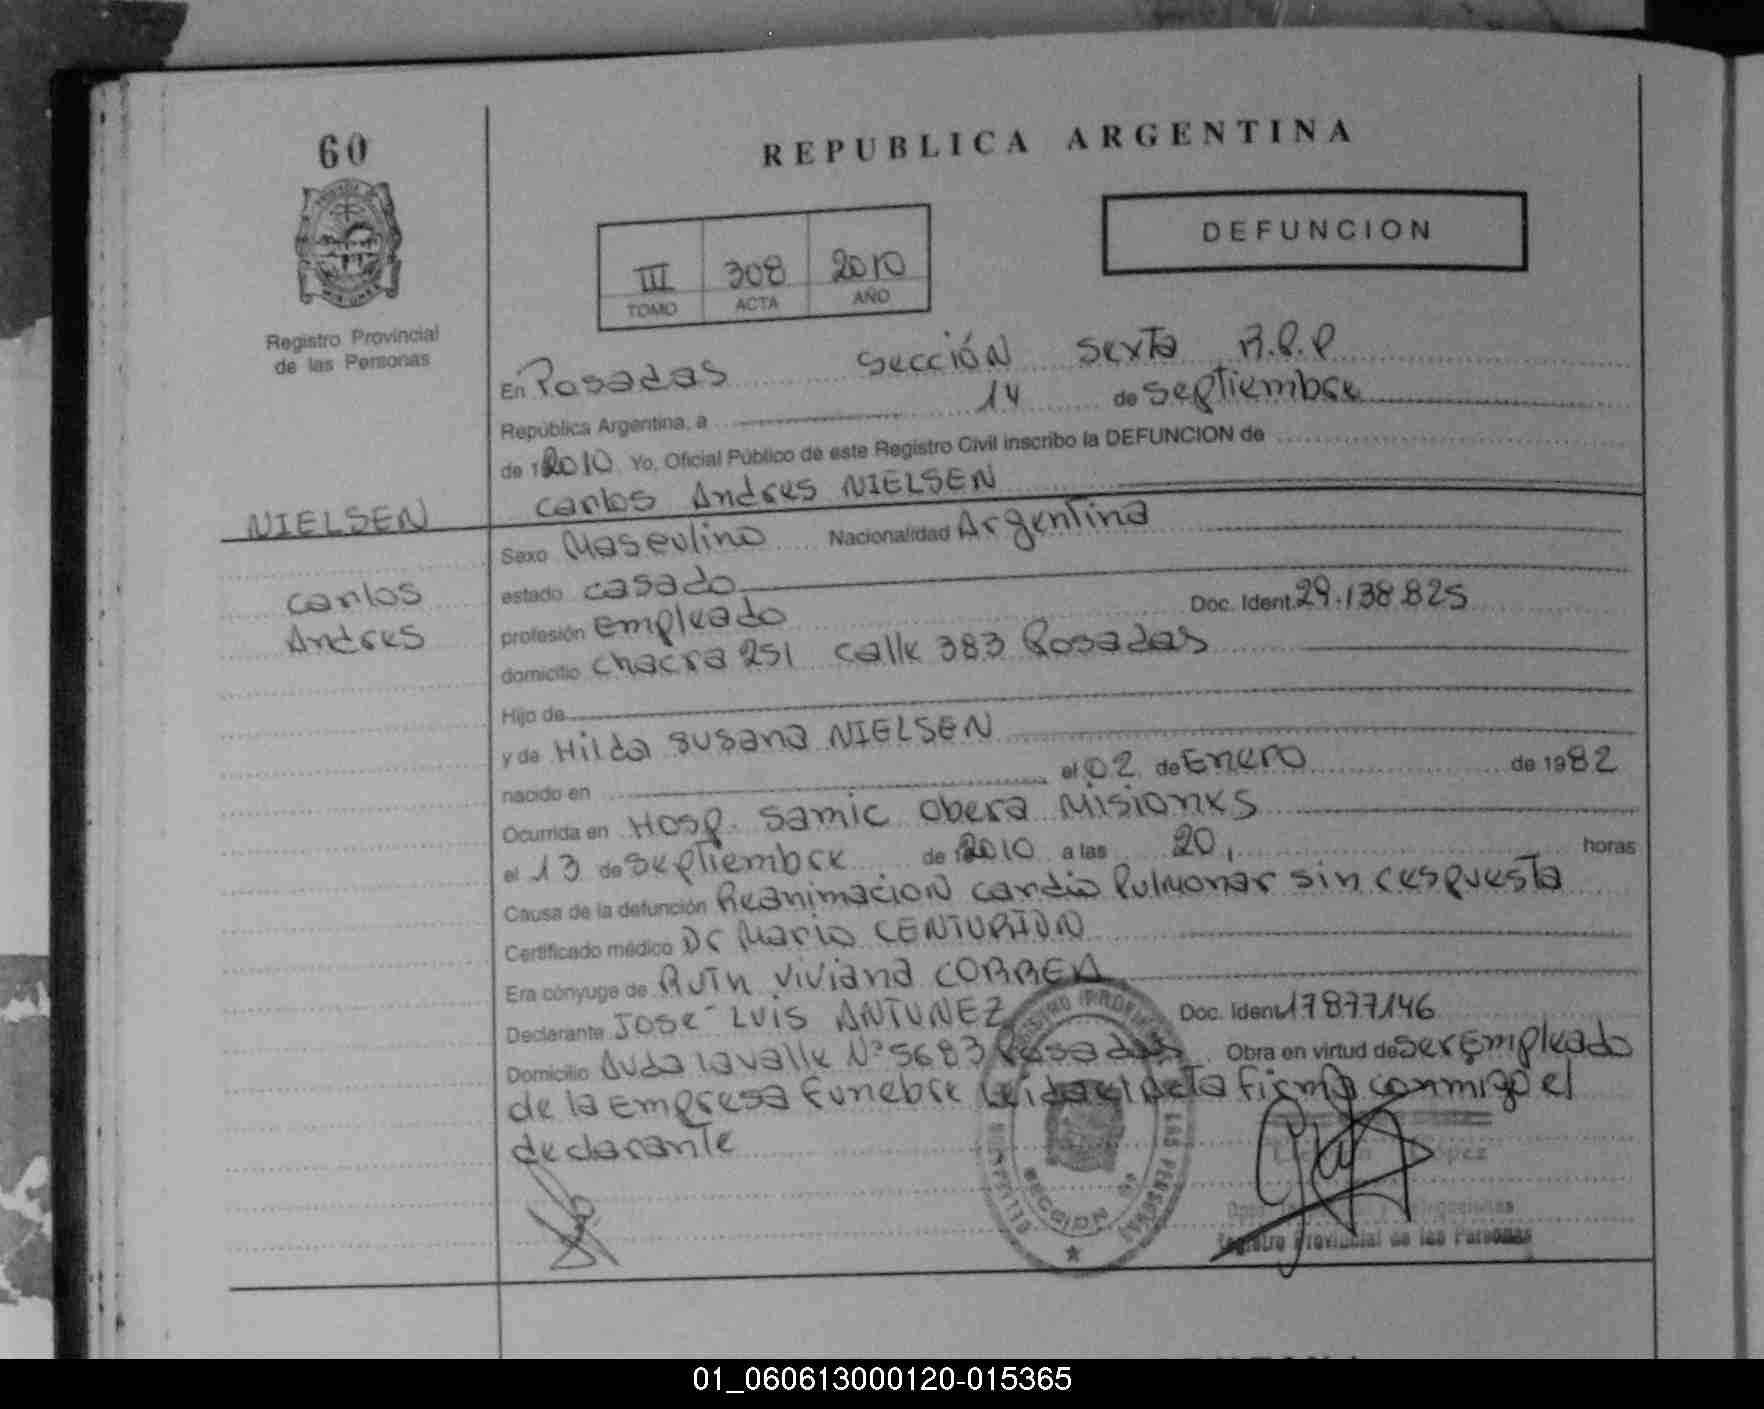 60
REPUBLICA ARGENTINA
DEFUNCION
III 308 2010
TOMO ACTA AÑO
Registro Provincial
de las Personas
En Posadas Sección Sexta R.P.P
República Argentina, a 14 de Septiembre
de 2010 Yo, Oficial Público de este Registro Civil inscribo la DEFUNCION de
Carlos Andres NIELSEN
NIELSEN
Carlos
Andres
Sexo Masculino Nacionalidad Argentina
estado casado
profesión Empleado Doc. Ident. 29.138.825
domicilio chacra 251 calle 383 Posadas
Hijo de
y de Hilda Susana NIELSEN
nacido en el 02 de Enero de 1982
Ocurrida en Hosp. Samic Obera Misiones
el 13 de Septiembre de 2010 a las 20, horas
Causa de la defunción Reanimacion cardio Pulmonar sin respuesta
Certificado médico Dr Mario CENTURION
Era cónyuge de Ruth Viviana CORREA
Declarante Jose Luis ANTUNEZ Doc. Ident. 17877146
Domicilio Avda Lavalle Nº 5683 Posadas Obra en virtud de ser Empleado
de la Empresa Funebre Leida el Acta firma conmigo el
declarante
REGISTRO PROVINCIAL DE LAS PERSONAS
SECCION
Registro Provincial de las Personas
01_060613000120-015365